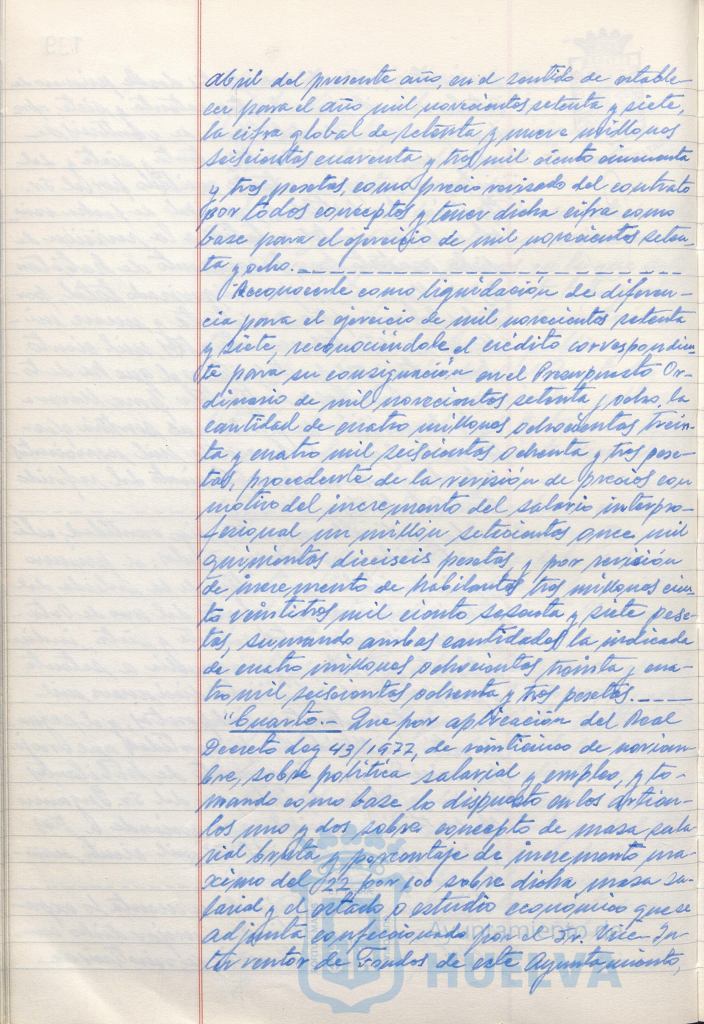 Abril del presente año, en el sentido de estable-
cer para el año mil novecientos setenta y siete,
la cifra global de setenta y nueve millones
seiscientas cuarenta y tres mil ciento cincuenta
y tres pesetas, como precio revisado del contrato
por todos conceptos, y tener dicha cifra como
base para el ejercicio de mil novecientos seten-
ta y ocho.
Reconocerle como liquidación de diferen-
cia para el ejercicio de mil novecientos setenta
y siete, reconociéndole el crédito correspondien-
te para su consignación en el Presupuesto Or-
dinario de mil novecientos setenta y ocho, la
cantidad de cuatro millones ochocientas trein-
ta y cuatro mil seiscientas ochenta y tres pese-
tas, procedente de la revisión de precios con
motivo del incremento del salario interpro-
fesional un millón setecientas once mil
quinientas dieciseis pesetas, y por revisión
de incremento de habitantes tres millones cien-
to veintitres mil ciento sesenta y siete pese-
tas, sumando ambas cantidades la indicada
de cuatro millones ochocientas treinta y cua-
tro mil seiscientas ochenta y tres pesetas.
"Cuarto.- Que por aplicación del Real
Decreto Ley 43/1977, de veinticinco de noviem-
bre, sobre política salarial y empleo, y to-
mando como base lo dispuesto en los artícu-
los uno y dos sobre concepto de masa sala-
rial bruta y porcentaje de incremento má-
ximo del 22 por 100 sobre dicha masa sa-
larial y el estado o estudio económico que se
adjunta confeccionado por el Sr. Vice-In-
terventor de Fondos de este Ayuntamiento,
Ayuntamiento de
HUELVA